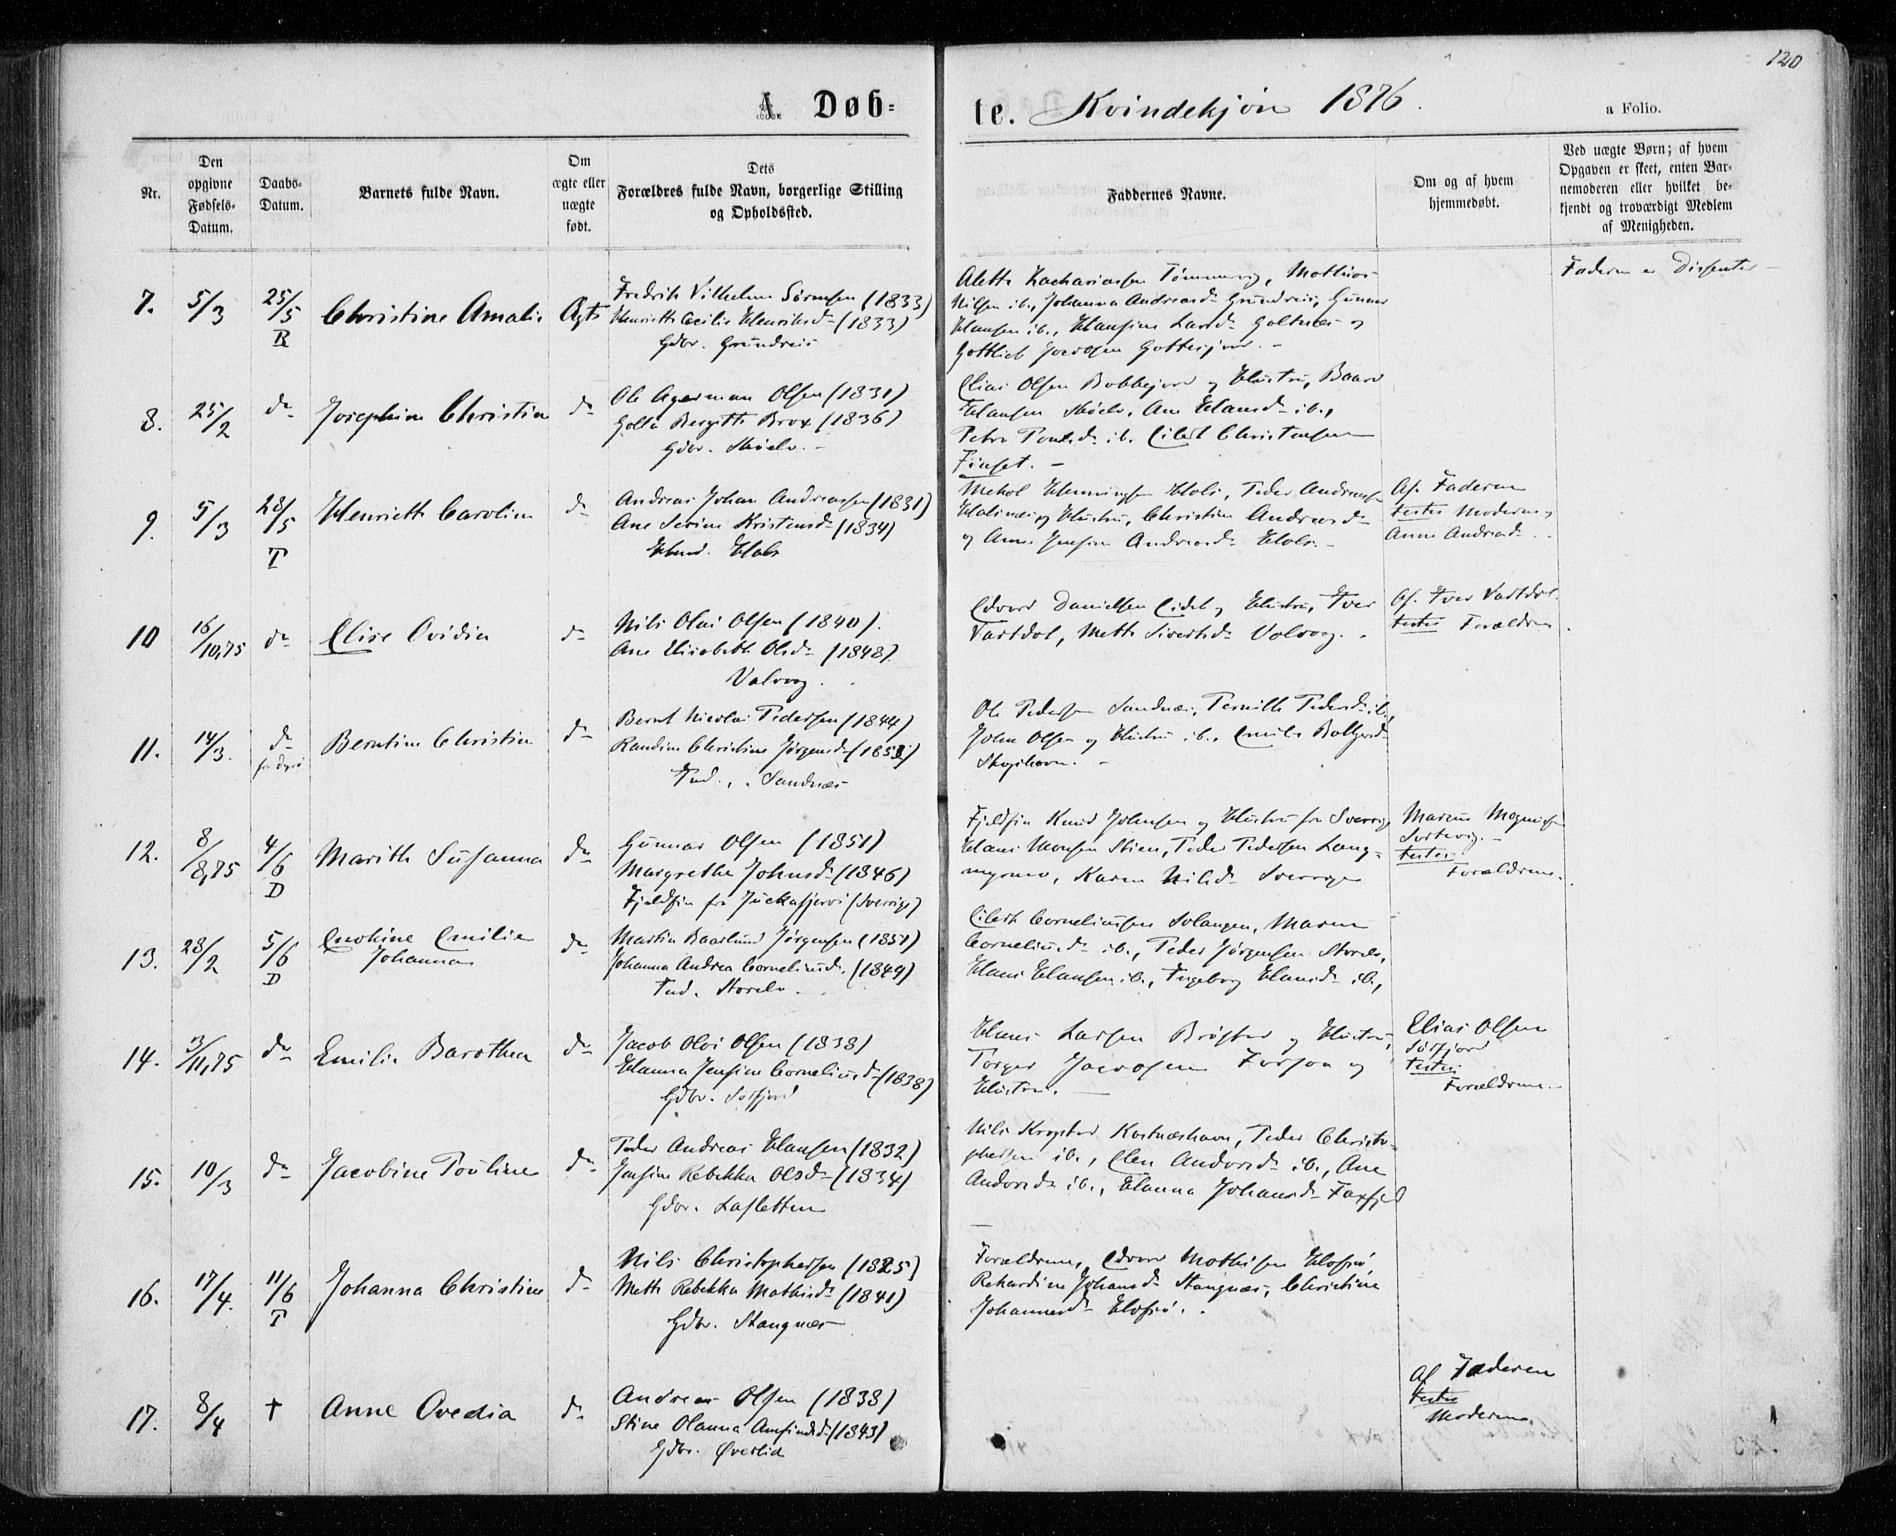 120
A Døb-
te. Kvindekjøn 1876.
a Folio.
Nr.
Den opgivne Fødsels-Datum.
Daabs-Datum.
Barnets fulde Navn.
Om ægte eller uægte født.
Dets Forældres fulde Navn, borgerlige Stilling og Opholdssted.
Faddernes Navne.
Om og af hvem hjemmedøbt.
Ved uægte Børn; af hvem Opgaven er skeet, enten Barnemoderen eller hvilket bekjendt og troværdigt Medlem af Menigheden.
7. 5/3 25/5 R Christine Amalie Ægte
Fredrik Vilhelm Sørensen (1833)
Henriette Cecilie Henriksd. (1833)
Gdbr. Grundreis
Alette Zachariassen Tømmervig, Mathias
Nilsen ib., Johanna Andreasd. Grundreis, Gunnar
Hansen ib., Hansine Larsd.
Gottlieb Jacobsen
Faderen er Dissenter
8. 25/2 do Josephine Christine do
Ole Agerman Olsen (1831)
Bergitte Brox (1836)
Gdbr. Skøelv.
Elias Olsen og Hustru, Baard
Hansen Skøelv, Ane Hansd. ib.,
Petra ib. Eilert Christensen
Finset.
9. 5/3 28/5 T Henriette Caroline do
Andreas Johan Andreassen (1831)
Ane Serine Kristensd. (1834)
Peder Andreassen
og Hustru, Christine Andreasd.
og Anne Jensine Andreasd.
Af Faderen
testes Moderen og
Anne Andreasd.
10 16/10,75 do Elise Ovidia do
Nils Olai Olsen (1840).
Ane Elisabeth Olsd. (1848)
Valvog.
Edvard Danielsen Eidet og Hustru, Iver
Vastdal, Mette Sivertsd. Valvog.
Af Iver Vastdal
testes Forældrene.
11. 14/3. do Berntine Christine do
Bernt Nicolai Pedersen (1844)
Randine Christine Jørgensd. (1851)
Ind., Sandnæs
Ole Pedersen Sandnæs, Pernille Pedersd. ib.,
John Olsen og Hustru ib., Emilie
12. 8/8,75 4/6 D Marith Susanna do
Gunnar Olsen (1851)
Margrethe Johnsd. (1846)
Fjeldfin fra Juckasjervi (Sverrige)
Fjeldfin Knud Johnsen og Hustru fra Sverrig,
Hans Monsen Stien, Peder Pedersen Lang-
, Karen Nilsd. Sverrige
Marcus
testes
Forældrene.
13. 28/2 5/6 D Enokine Emilie
Johanna do
Martin Baarlund Jørgensen (1851)
Johanna Andrea Corneliusd. (1849)
Ind. Storelv.
Eilert Corneliussen Solangen, Maren
Corneliusd. ib., Peder Jørgensen Storelv,
Hans Hansen ib., Ingeborg Hansd. ib.,
14. 3/11,75 do Emilie Barothea do
Jacob Olai Olsen (1838)
Hanna Jensine Corneliusd. (1838)
Gdbr. Sørfjord
Hans Larsen Brøstad og Hustru,
Torger Jacobsen og
Hustru.
Elias Olsen
Sørfjord
testes
Forældrene.
15. 10/3 do Jacobine Pouline do
Peder Andreas Hansen (1832)
Jensine Rebekka Olsd. (1834)
Gdbr. Lasletten
Nils Krogstad Kastneshavn, Peder Christo-
phersen ib., Elen Andorsd. ib., Ane
Andorsd. ib., Hanna Johansd. Faxfjel
16. 17/4. 11/6 T Johanna Christine do
Nils Christophersen (1825)
Mette Rebekka Mathisd. (1841)
Gdbr. Stangnæs
Forældrene, Edvard Mathisen
Rekardine Johansd. Stangnæs, Christine
Johannesd.
17. 8/4 † Anne Ovedia do
Andreas Olsen (1838)
Stine Olanna Amfindsd. (1843)
Gdbr. Øverlid
Af Faderen
testes
Moderen.